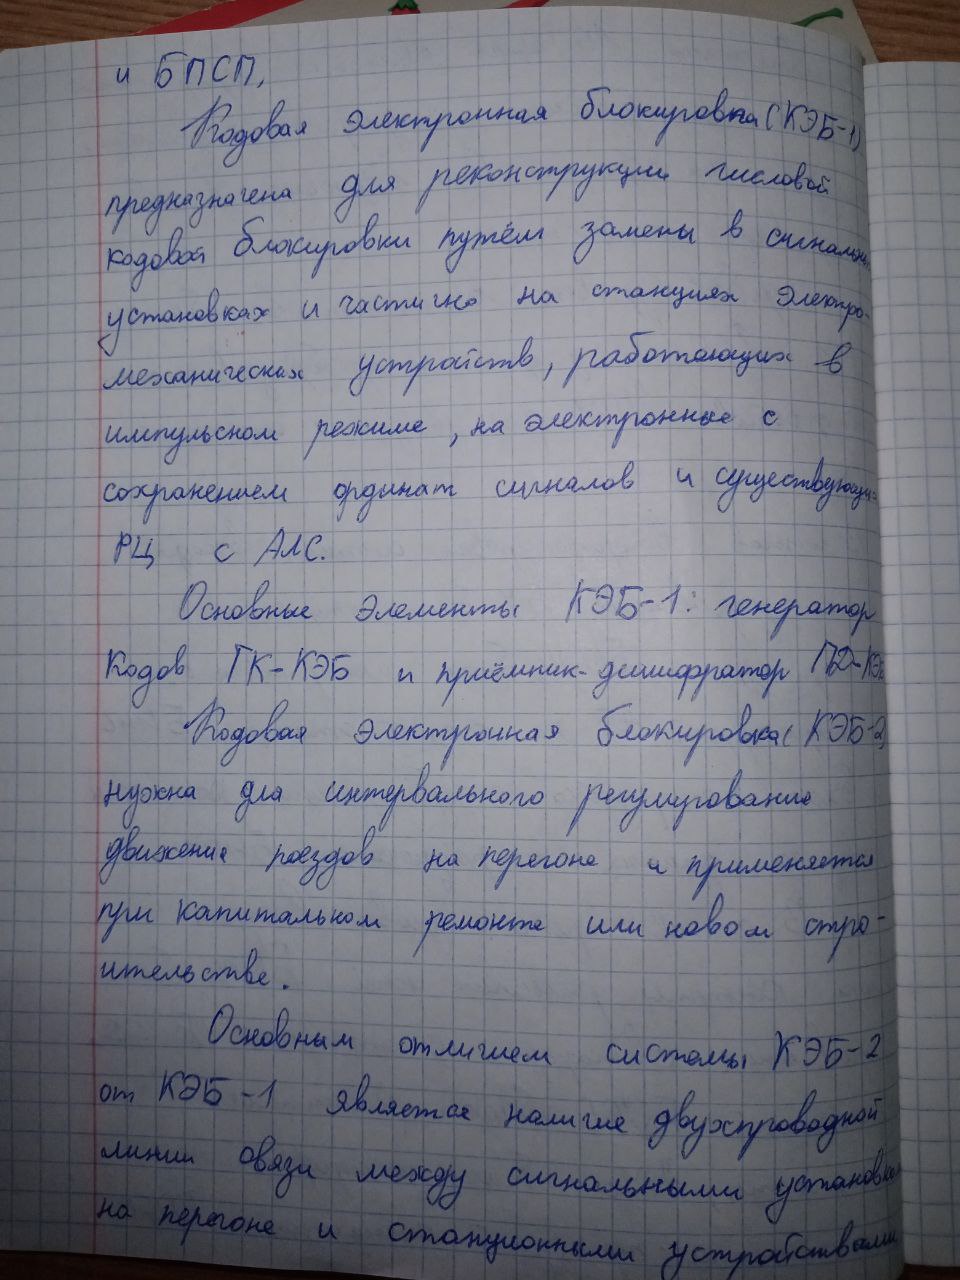 и БПСП,
Кодовая электронная блокировка (КЭБ-1)
предназначена для реконструкции числовой
кодовой блокировки путём замены в сигнальн
установках и частично на станциях электро-
механических устройств, работающих в
импульсном режиме, на электронные с
сохранением ординат сигналов и существующи
РЦ с АЛС.
Основные элементы КЭБ-1: генератор
кодов ГК-КЭБ и приёмник-дешифратор ПД-КЭБ
Кодовая электронная блокировка (КЭБ-2)
нужна для интервального регулирование
движение поездов на перегоне и применяется
при капитальном ремонте или новом стро-
ительстве.
Основным отличием системы КЭБ-2
от КЭБ-1 является наличие двухпроводной
линии связи между сигнальными установками
на перегоне и станционными устройствами